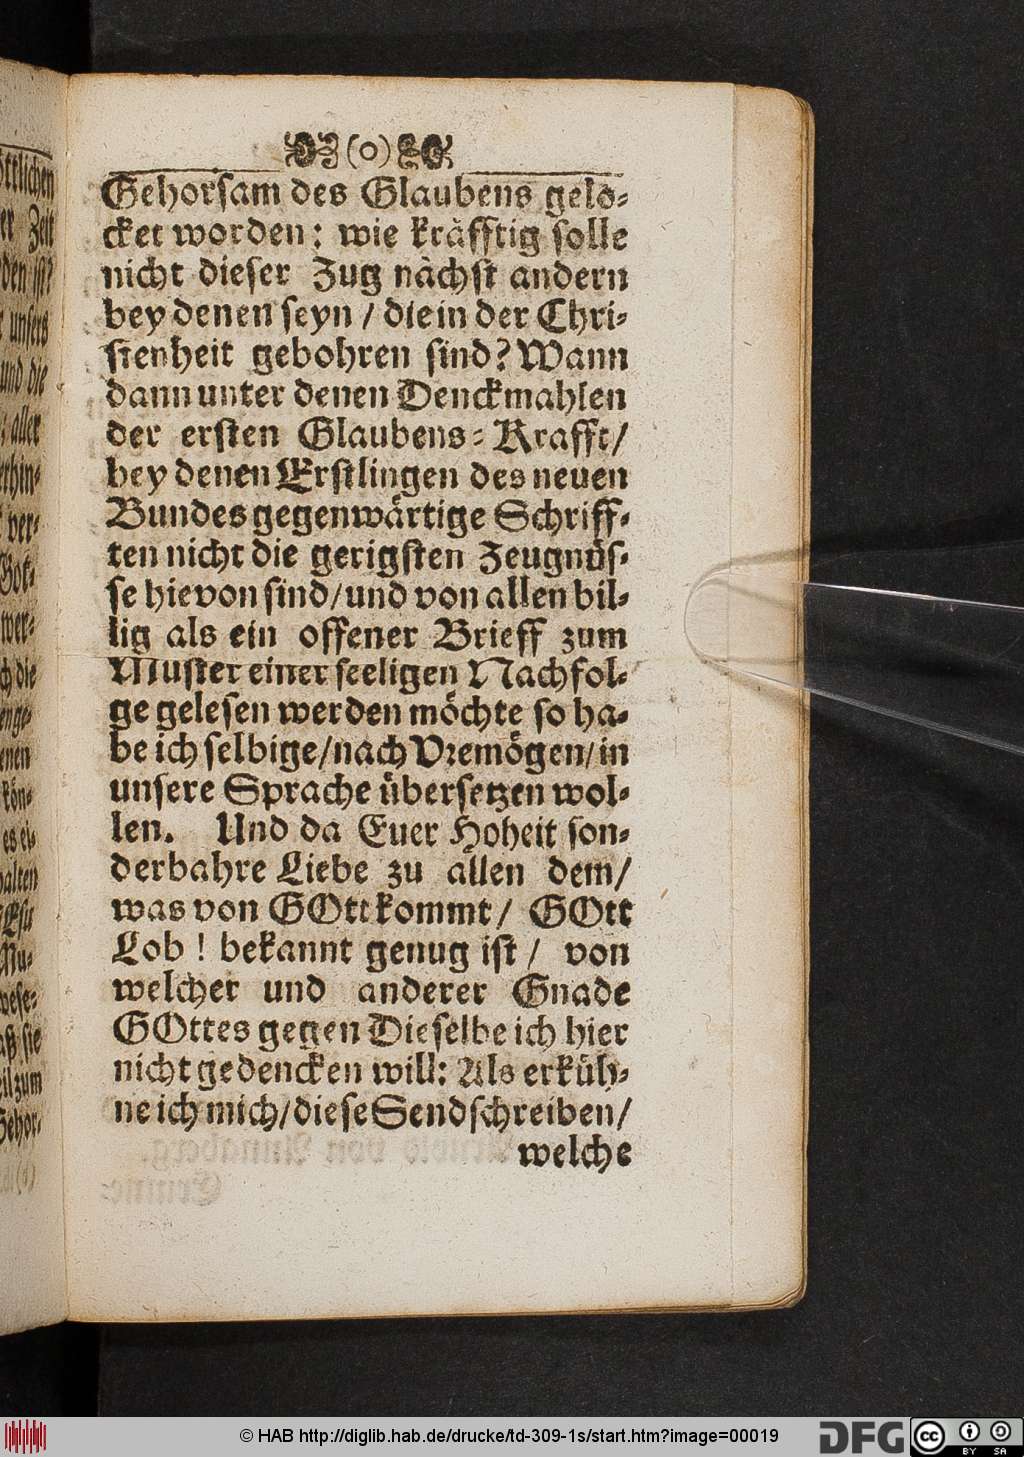 (o)
Gehorsam des Glaubens gelo-
cket worden: wie kräfftig solle
nicht dieser Zug nächst andern
bey denen seyn / die in der Chri-
stenheit gebohren sind? Wann
dann unter denen Denckmahlen
der ersten Glaubens-Krafft/
bey denen Erstlingen des neuen
Bundes gegenwärtige Schriff-
ten nicht die gerigsten Zeugnüs-
se hievon sind/und von allen bil-
lig als ein offener Brieff zum
Muster einer seeligen Nachfol-
ge gelesen werden möchte so ha-
be ich selbige/nach Vremögen/in
unsere Sprache übersetzen wol-
len. Und da Euer Hoheit son-
derbahre Liebe zu allen dem/
was von GOtt kommt/ GOtt
Lob! bekannt genug ist/ von
welcher und anderer Gnade
GOttes gegen Dieselbe ich hier
nicht gedencken will: Als erküh-
ne ich mich/diese Sendschreiben/
welche
© HAB http://diglib.hab.de/drucke/td-309-1s/start.htm?image=00019
DFG
CC BY SA